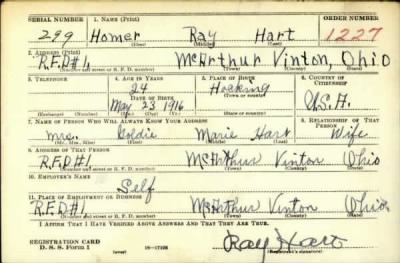 SERIAL NUMBER 1. NAME (Print) ORDER NUMBER
299 Homer Ray Hart 1227
(First) (Middle) (Last)
2. ADDRESS (Print)
R.F.D#1, McArthur Vinton, Ohio
(Number and street or R. F. D. number) (Town) (County) (State)
3. TELEPHONE 4. AGE IN YEARS 5. PLACE OF BIRTH 6. COUNTRY OF CITIZENSHIP
24 Hocking
DATE OF BIRTH (Town or county)
May 23 1916 U.S.A.
(Exchange) (Number) (Mo.) (Day) (Yr.) (State or country)
7. NAME OF PERSON WHO WILL ALWAYS KNOW YOUR ADDRESS 8. RELATIONSHIP OF THAT PERSON
Mrs. Goldie Marie Hart Wife
(Mr., Mrs., Miss) (First) (Middle) (Last)
9. ADDRESS OF THAT PERSON
R.F.D#1 McArthur Vinton Ohio
(Number and street or R. F. D. number) (Town) (County) (State)
10. EMPLOYER'S NAME
Self
11. PLACE OF EMPLOYMENT OR BUSINESS
R.F.D#1 McArthur Vinton Ohio
(Number and street or R. F. D. number) (Town) (County) (State)
I AFFIRM THAT I HAVE VERIFIED ABOVE ANSWERS AND THAT THEY ARE TRUE.
REGISTRATION CARD
D. S. S. Form 1 (over) 16—17105 Ray Hart
(Registrant's signature)